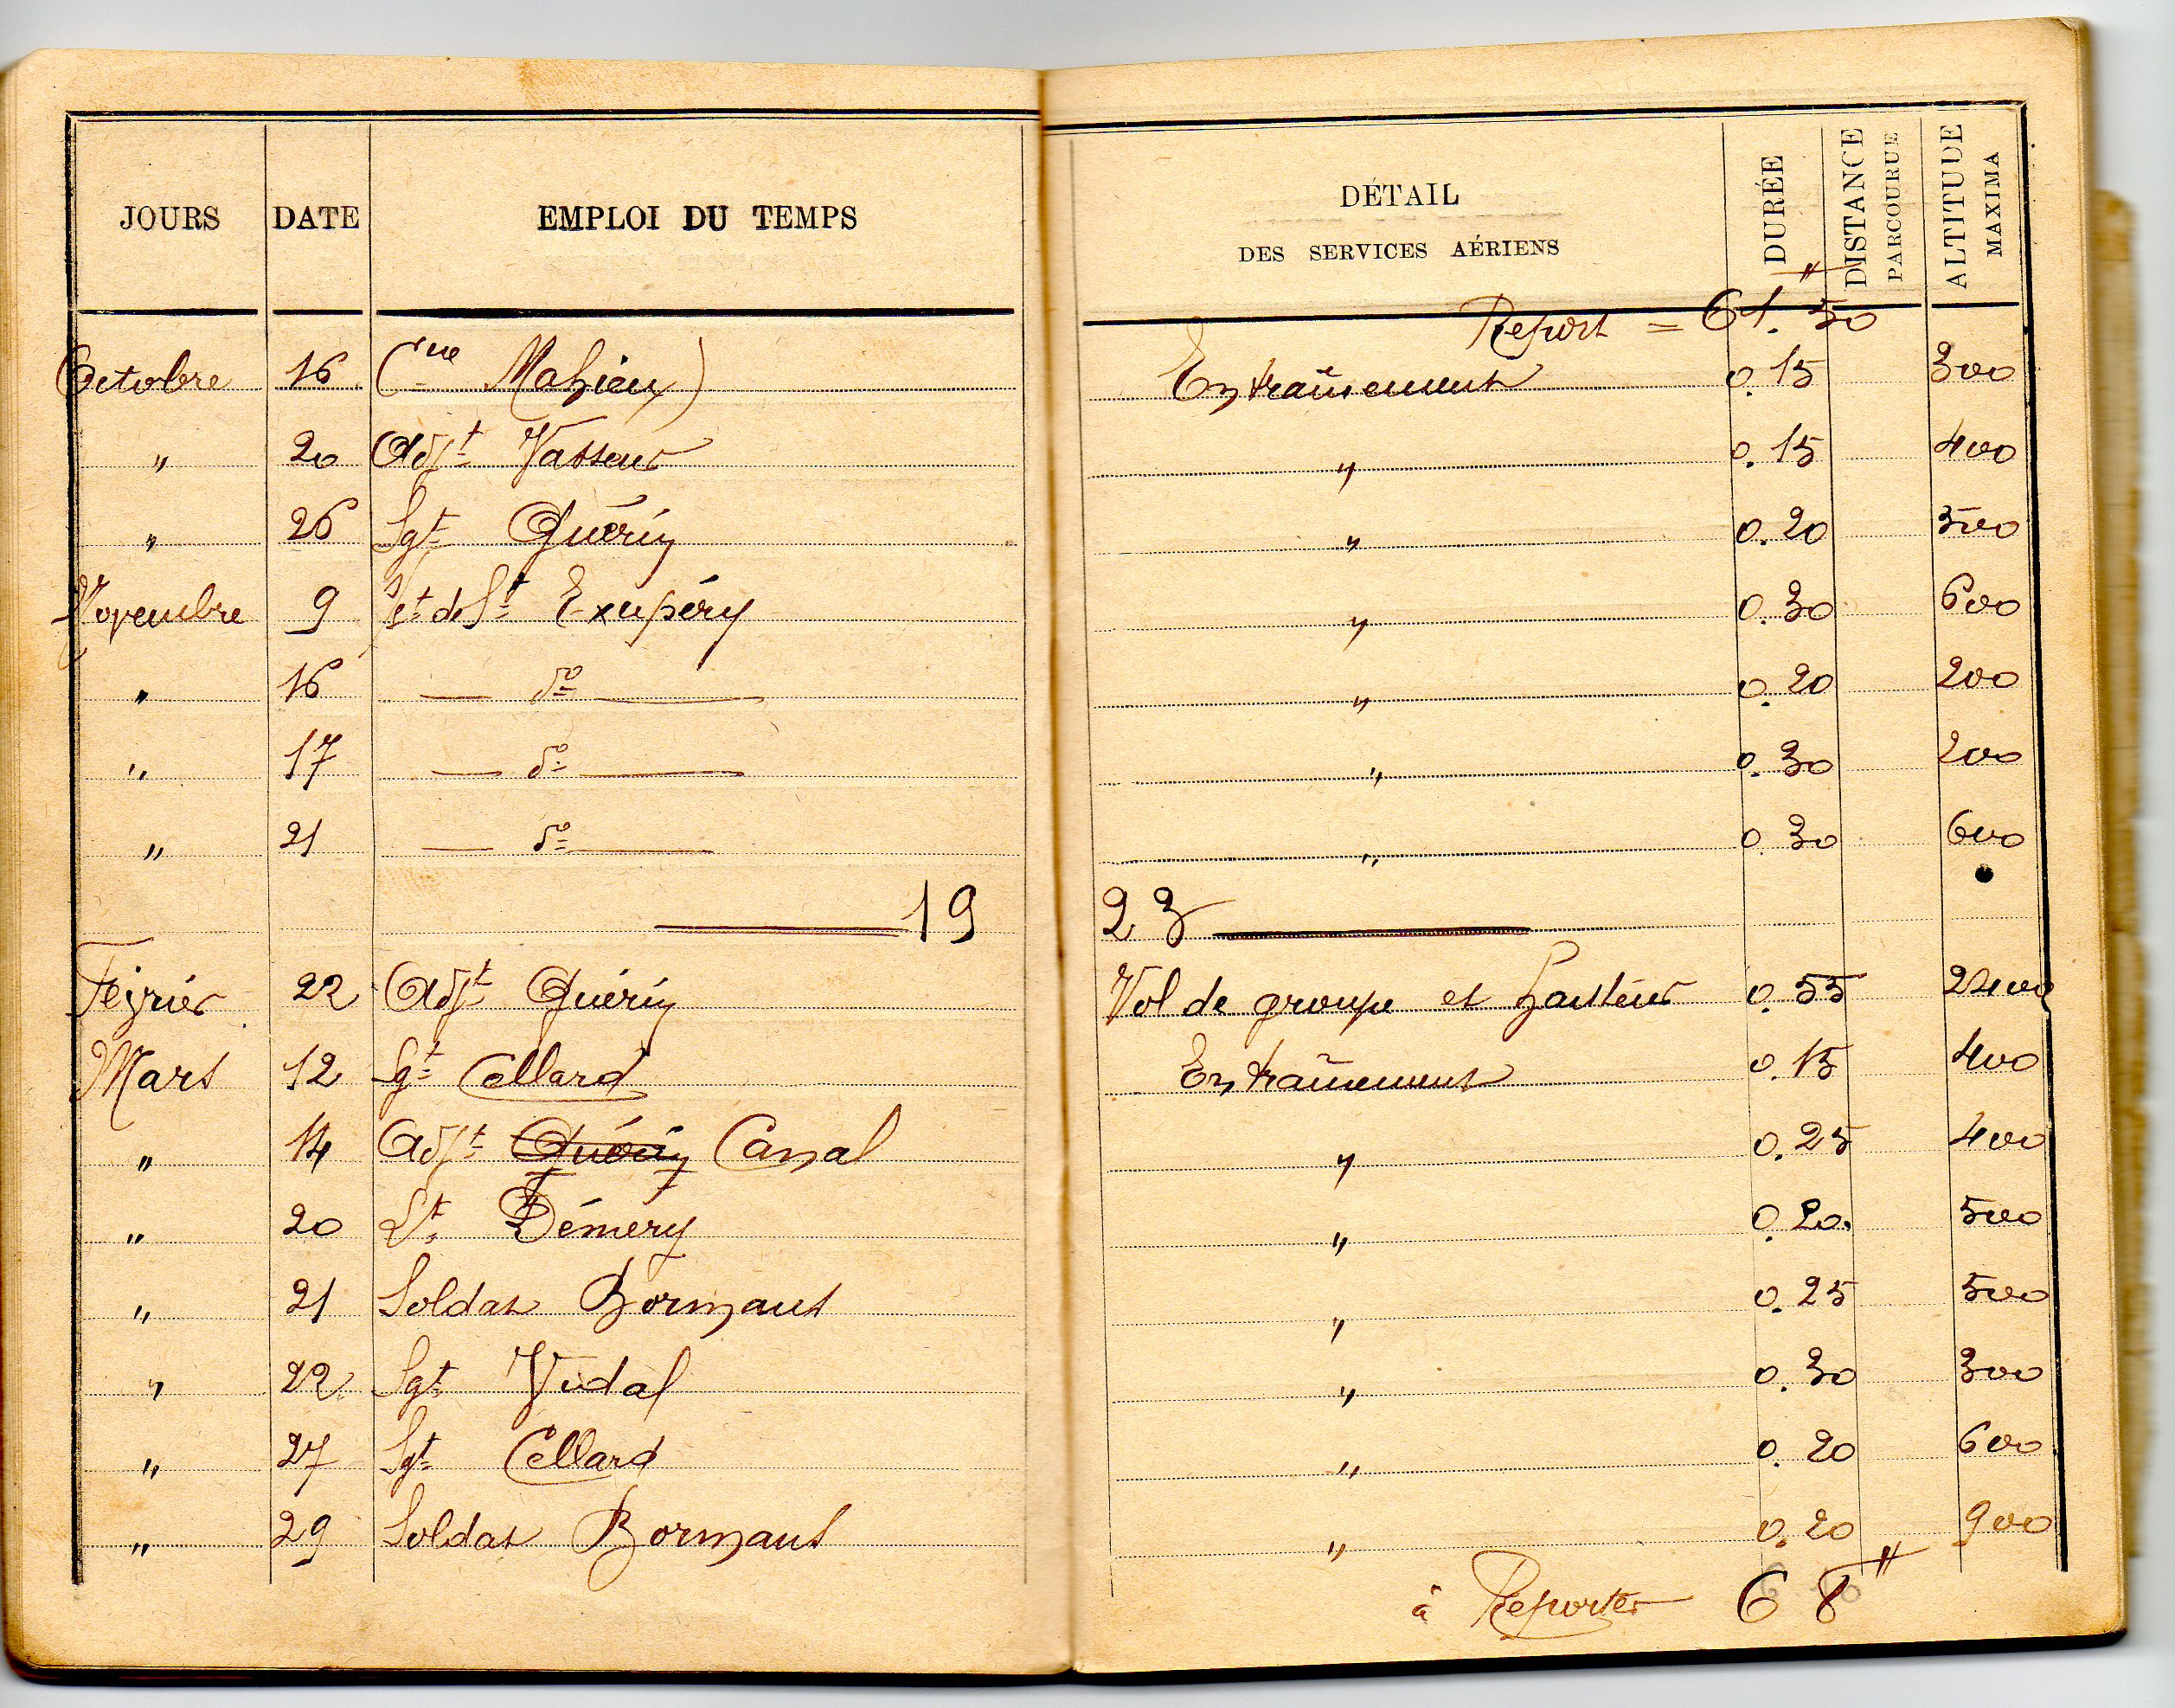 JOURS DATE EMPLOI DU TEMPS DÉTAIL DES SERVICES AÉRIENS DURÉE DISTANCE PARCOURUE ALTITUDE MAXIMA
Report = 61. 50
Octobre 16 (ne Mahieu) Entraînement 0.15 300
" 20 Adjt Vasseur " 0.15 400
" 26 Sgt Guérin " 0.20 500
Novembre 9 St de St Exupéry " 0.30 600
" 16 — do — " 0.20 200
" 17 — do — " 0.30 200
" 21 — do — " 0.30 600
— 19 23 —
Février 22 Adjt Guérin Vol de groupe et hauteur 0.55 2400
Mars 12 Sgt Cellard Entraînement 0.15 400
" 14 Adjt Guérin Canal " 0.25 400
" 20 Lt Démery " 0.20. 500
" 21 Soldat Bormans " 0.25 500
" 22 Sgt Vidal " 0.30 300
" 27 Sgt Cellard " 0.20 600
" 29 Soldat Bormans " 0.20 900
à Reporter 68